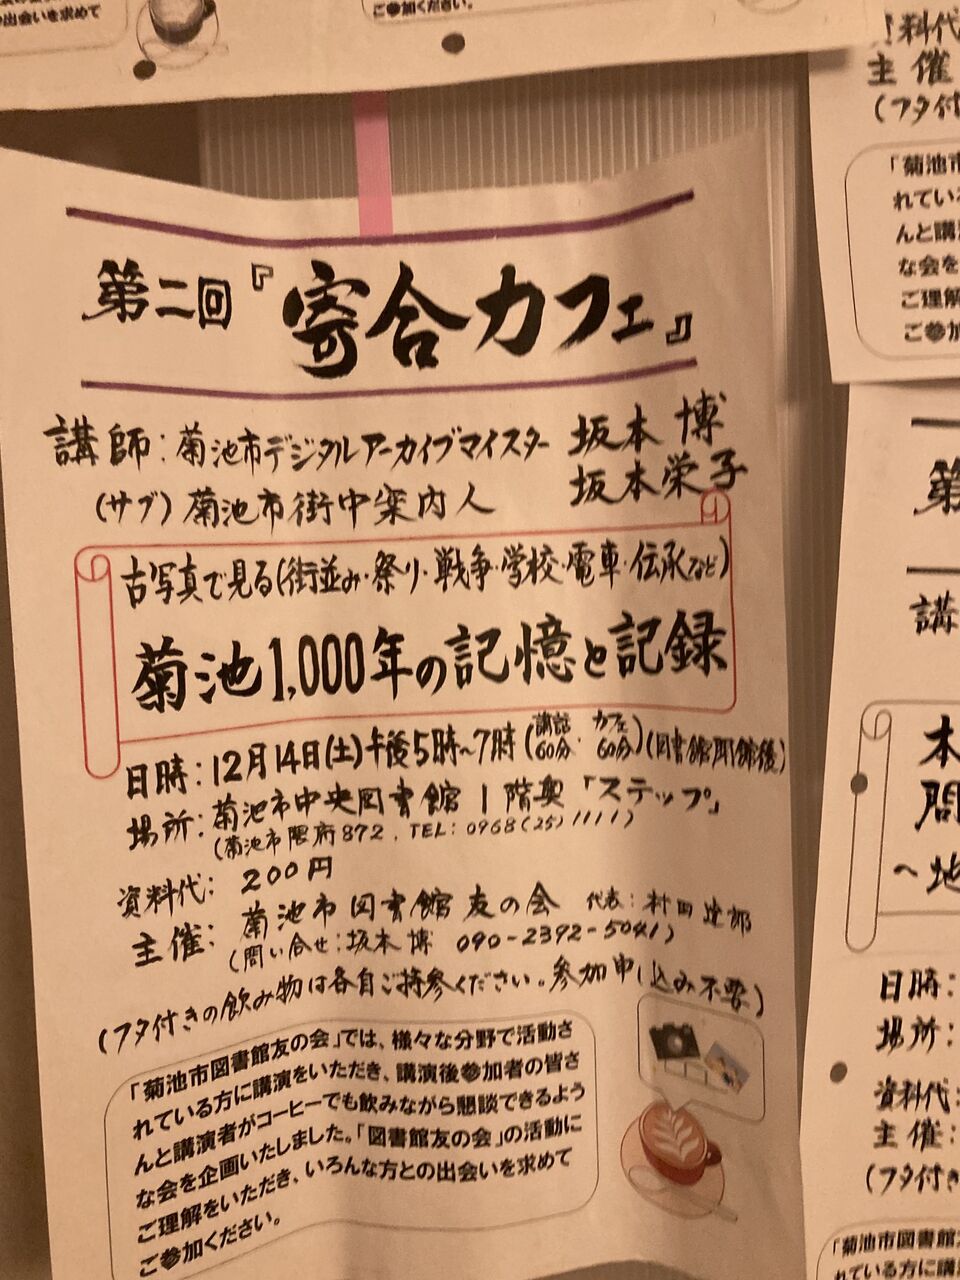 出会いを求めて
ご参加ください。
第二回『寄合カフェ』
講師：菊池市デジタルアーカイブマイスター 坂本 博
（サブ）菊池市街中案内人 坂本栄子
古写真で見る（街並み・祭り・戦争・学校・電車・伝承など）
菊池1,000年の記憶と記録
日時：12月14日（土）午後5時～7時（講話60分・カフェ60分）（図書館閉館後）
場所：菊池市中央図書館1階奥「ステップ」
（菊池市隈府872．TEL：0968（25）1111）
資料代：200円
主催：菊池市図書館友の会 代表：村田
（問い合せ：坂本博 090-2392-5041）
（フタ付きの飲み物は各自ご持参ください。参加申し込み不要）
「菊池市図書館友の会」では、様々な分野で活動さ
れている方に講演をいただき、講演後参加者の皆さ
んと講演者がコーヒーでも飲みながら懇談できるよう
な会を企画いたしました。「図書館友の会」の活動に
ご理解をいただき、いろんな方との出会いを求めて
ご参加ください。
料代
主催
（フタ付
「菊池市
れてい
んと講
な会を
ご理解
ご参加
第
講
本
問
～地
日時：
場所：
資料代：
主催：
（フタ付き
「菊池市図書館
れている方に講